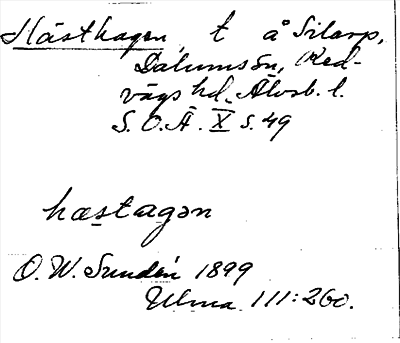 Hästhagen, t å Silarp,
Dalums sn, Red-
vägs hd. Älvsb. l.
S. O. Ä. X s. 49
hæstagən
O. W. Sundén 1899
Ulma 111:260.